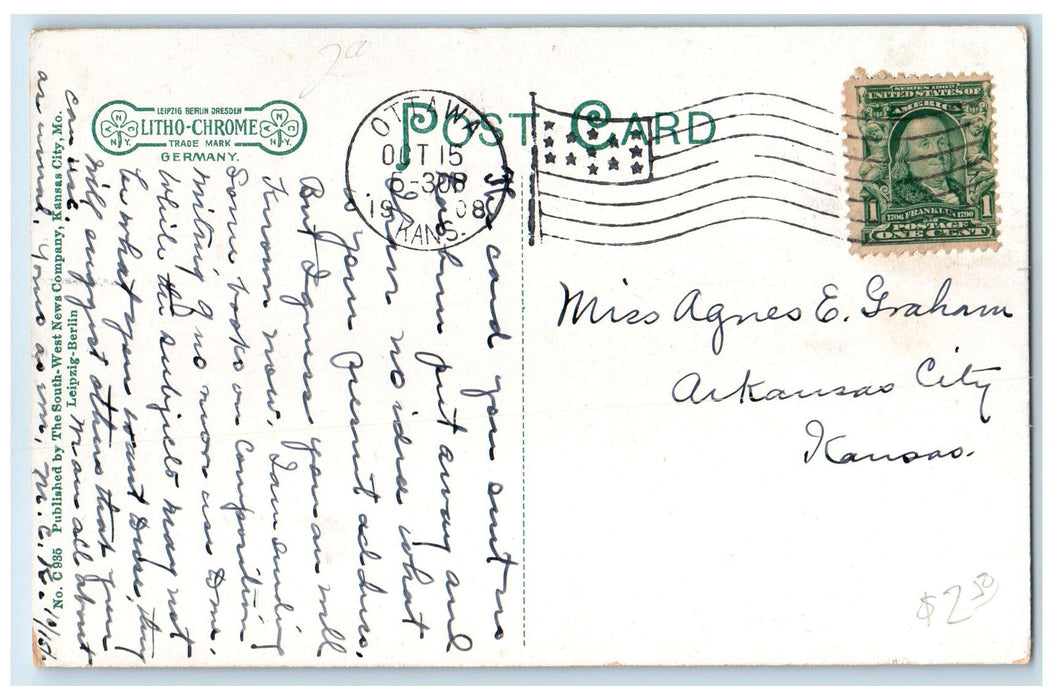 LEIPZIG BERLIN DRESDEN
LITHO-CHROME
TRADE MARK
N.Y.
N.Y.
GERMANY.
POST CARD
OTTAWA
OCT 15
6-30P
1908
KANS.
SERIES 1902
UNITED STATES OF
AMERICA
1
1706 FRANKLIN 1790
1
POSTAGE
ONE CENT
Miss Agnes E. Graham
Arkansas City
Kansas.
$2.50
The card you sent us
has been put away and
I have no idea what
is your present address,
But I guess you are well
known now. I am sending
some books on composition
writing I no more use to me.
While the subjects may not
be what you want due, they
will suggest others that you
can use. Mam all about
as usual. yours as ever, M. C. K. 10/15.
No. C 935 Published by The South-West News Company, Kansas City, Mo.
Leipzig-Berlin